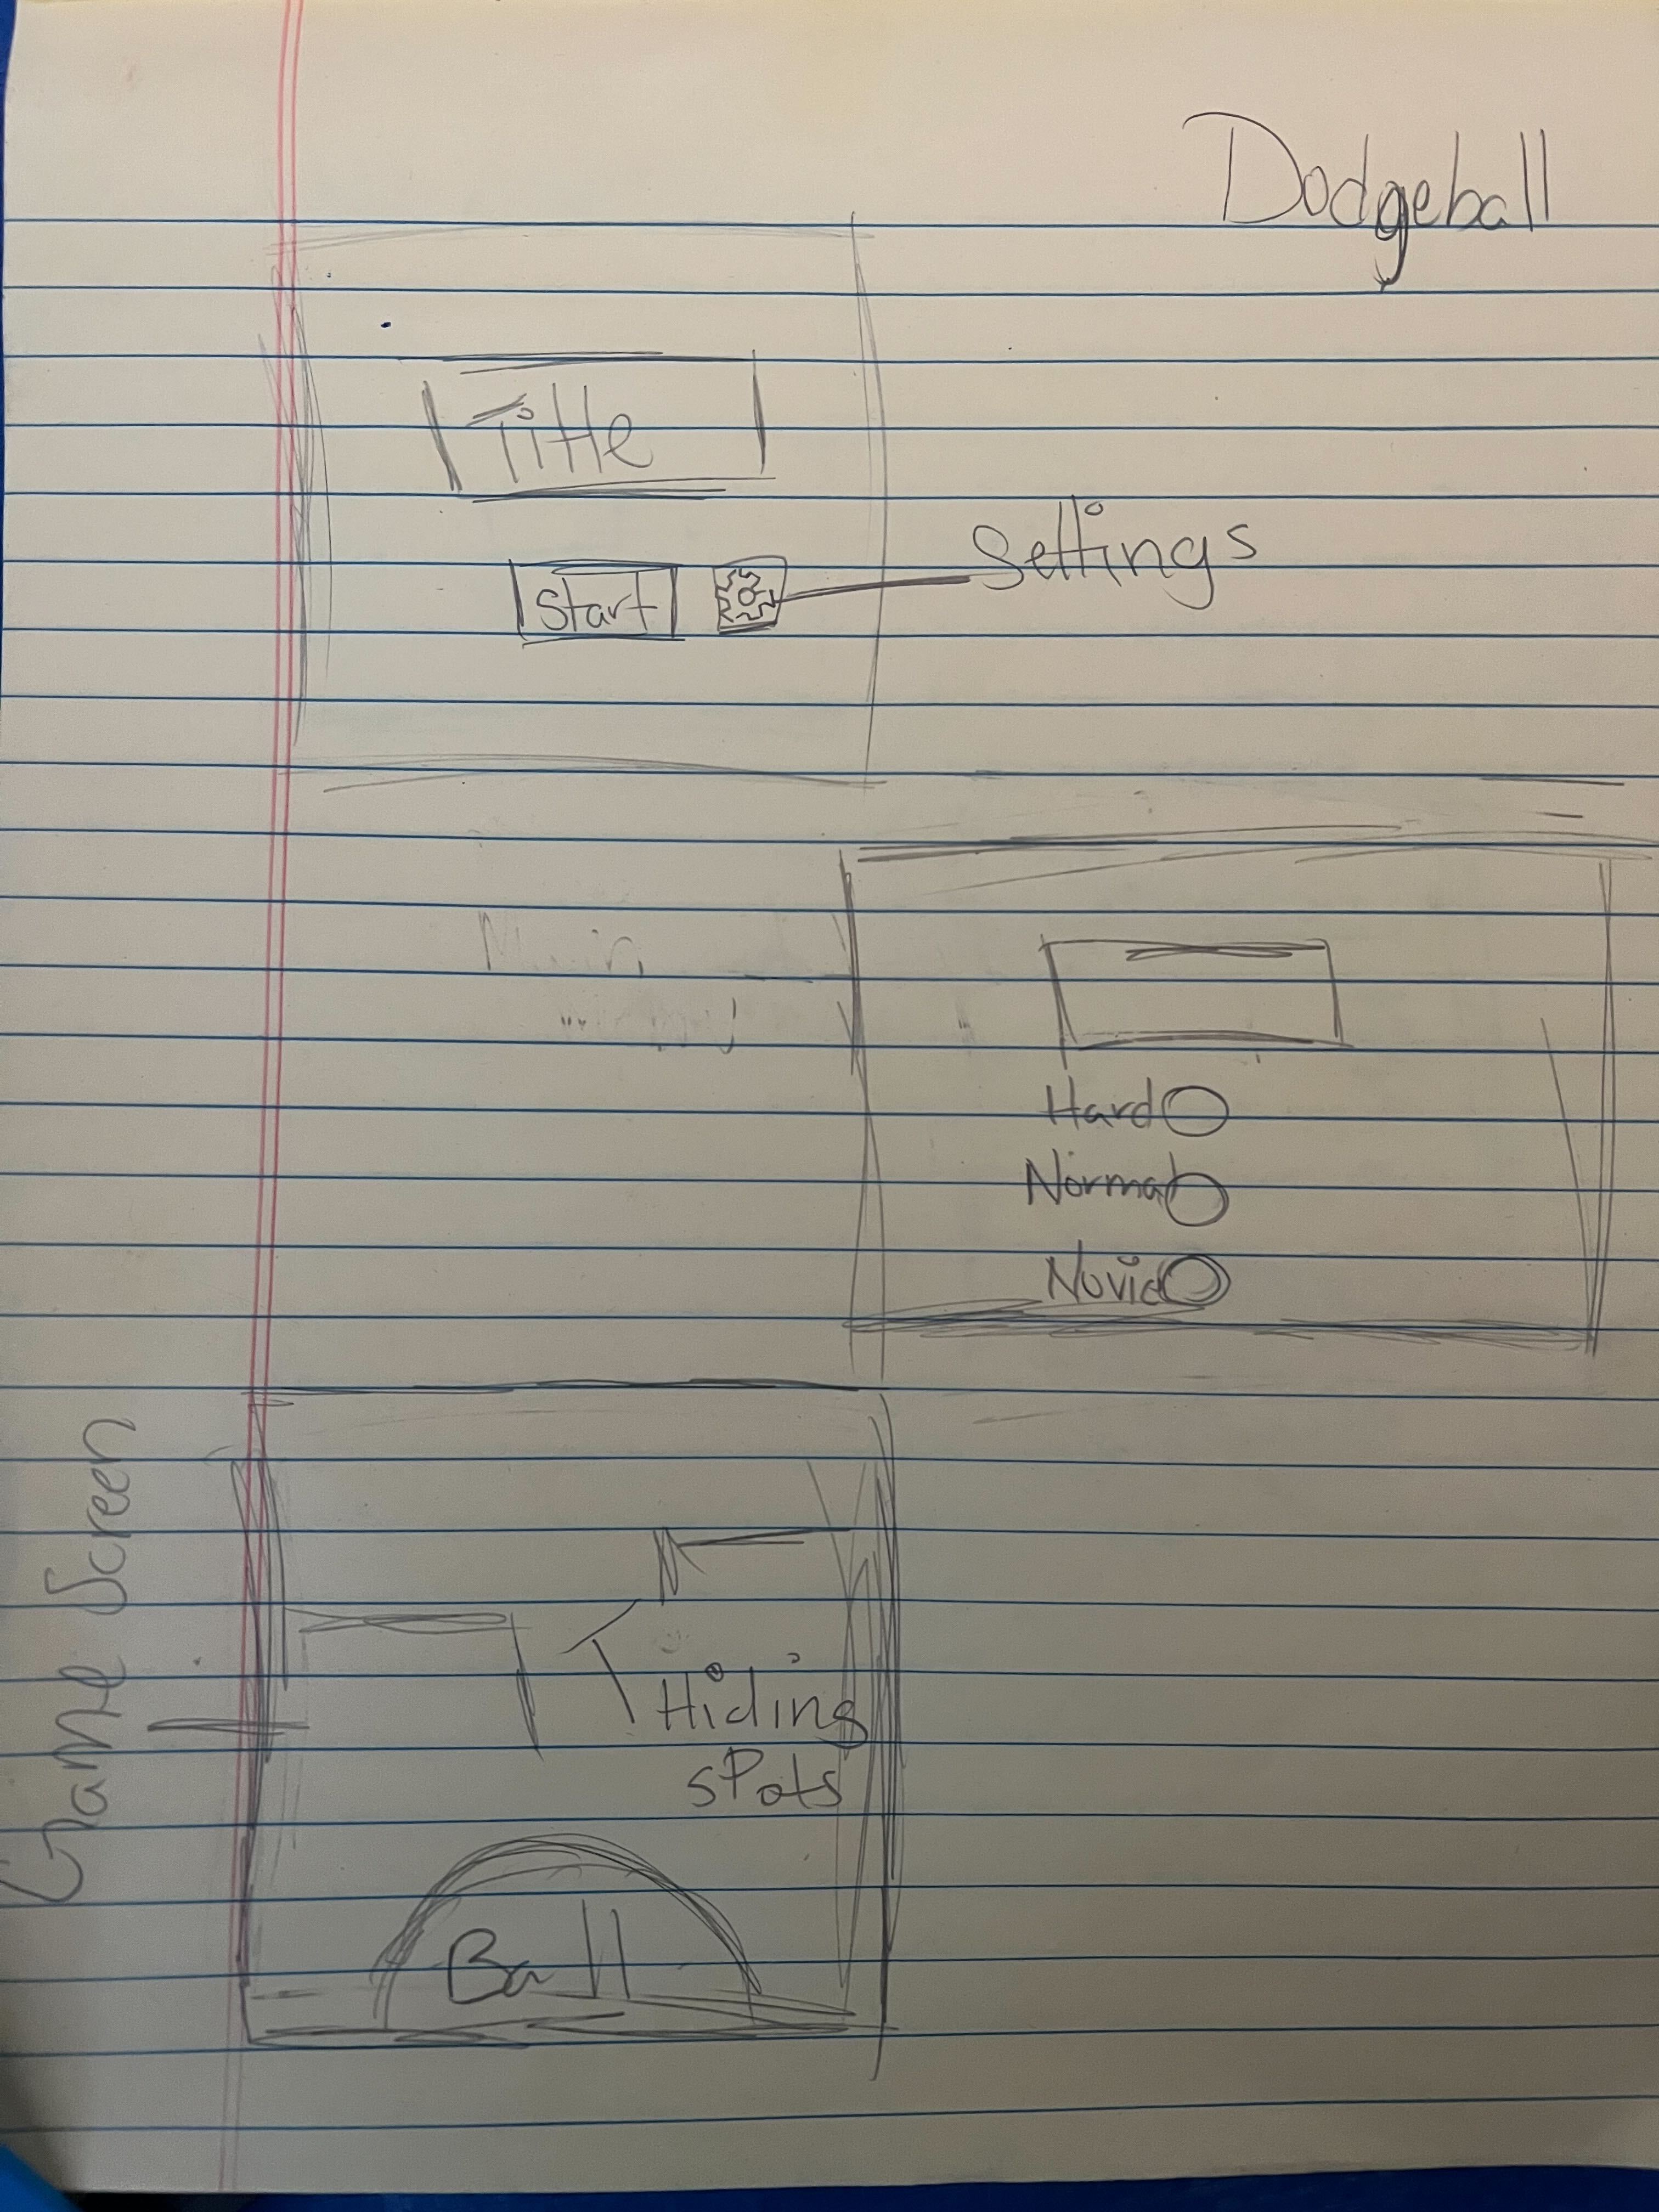 Dodgeball
Title
Start
Settings
Hard
Normal
Novic
Game Screen
Hiding
sPots
Ball